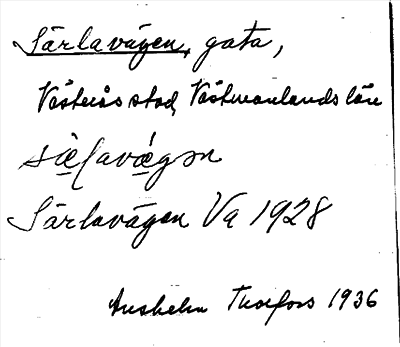 Särlavägen, gata,
Västerås stad, Västmanlands län
sæ̱ɭavæ̱gən
Särlavägen Va 1928
Anshelm Thorfors 1936